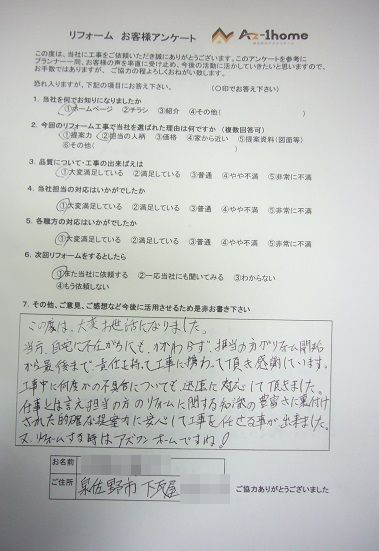 リフォーム　お客様アンケート
Az-1home
この度は、当社に工事をご依頼いただき誠にありがとうございます。このアンケートを参考に
プランナー一同、お客様の声を率直に受け止め、今後の活動に活かしていきたいと思いますので、
お手数ではありますが、ご協力の程よろしくおねがい致します。
恐れ入りますが、下記の項目にお答え下さい。　（○印でお答え下さい）
1. 当社を何でお知りになりましたか
①ホームページ　②チラシ　③紹介　④その他（
2. 今回のリフォーム工事で当社を選ばれた理由は何ですか（複数回答可）
①提案力　②担当の人柄　③価格　④家から近い　⑤提案資料（図面等）
⑥その他（
3. 品質について・工事の出来ばえは
①大変満足している　②満足している　③普通　④やや不満　⑤非常に不満
4. 当社担当の対応はいかがでしたか
①大変満足している　②満足している　③普通　④やや不満　⑤非常に不満
5. 各職方の対応はいかがでしたか
①大変満足している　②満足している　③普通　④やや不満　⑤非常に不満
6. 次回リフォームをするとしたら
①また当社に依頼する　②一応当社にも聞いてみる　③わからない
④もう依頼しない
7. その他、ご意見、ご感想など今後に活用させるため是非お書き下さい
この度は、大変お世話になりました。
当方、自宅に不在がちにも、かかわらず、担当の方がリフォーム開始
から最後まで、責任を持って工事に携わって頂き感謝しています。
工事中に何度かの不具合についても、迅速に対応して頂きました。
仕事とは言え担当の方のリフォームに関する知識の豊富さに裏付け
された的確な提案力に安心して工事を任せる事が出来ました。
又、リフォームする時はアズワンホームですね！
お名前
ご住所　泉佐野市 下瓦屋
ご協力ありがとうございました